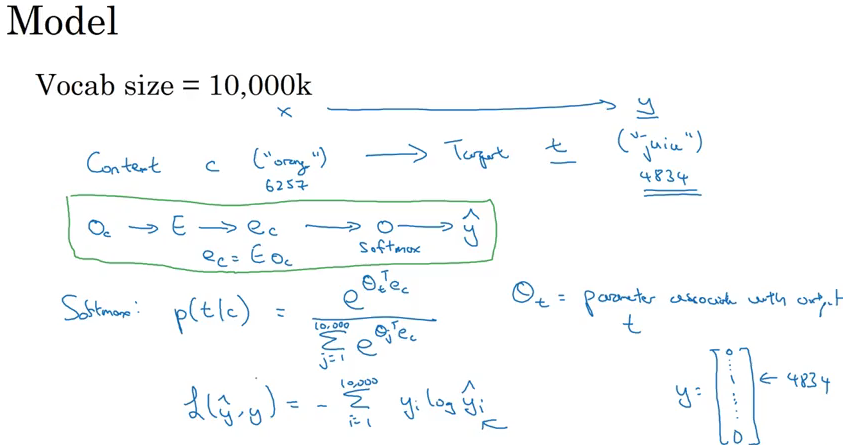 Model
Vocab size = 10,000k
x ⟶ y
Context c ("orange") ⟶ Target t ("juice")
6257 4834
O_c → E → e_c ⟶ O ⟶ ŷ
e_c = E O_c softmax
Softmax: p(t|c) = e^{θ_t^T e_c} / ∑_{j=1}^{10,000} e^{θ_j^T e_c}
θ_t = parameter associated with output t
ℒ(ŷ, y) = - ∑_{i=1}^{10,000} y_i log ŷ_i
y = [0 ⋮ 1 ⋮ 0] ← 4834